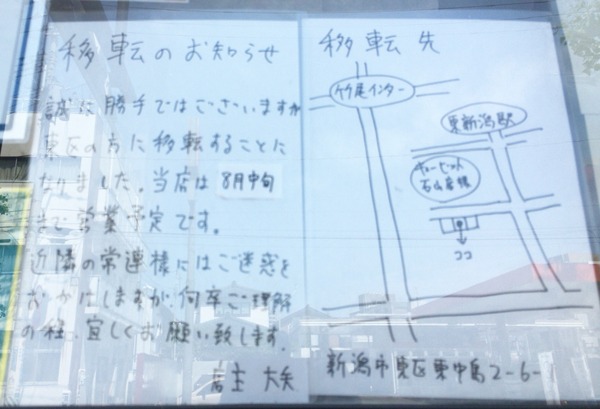 移転のお知らせ
誠に勝手ではございますが
東区の方に移転することに
なりました。当店は 8月中旬
まで営業予定です。
近隣の常連様にはご迷惑を
おかけしますが、何卒ご理解
の程、宜しくお願い致します。
店主 大矢
移転先
竹尾インター
東新潟駅
キューピット
石山店様
ココ
新潟市東区東中島2-6-